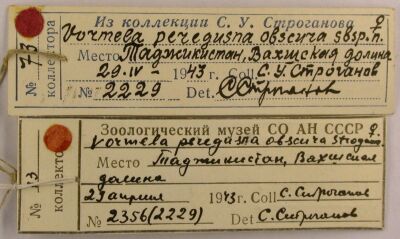 Из коллекции С. У. Строганова ♀
Vormela peregusna obscura sbsp. n.
Место Таджикистан, Вахшская долина
29. IV - 1943 г. Coll С. У. Строганов
№ 2229 Det. С. Строганов
№ 73
коллектора
Зоологический музей СО АН СССР ♀
Vormela peregusna obscura Stroganov
Место Таджикистан, Вахшская
долина
29 апреля 1943 г. Coll С. Строганов
№ 2356 (2229) Det С. Строганов
коллект